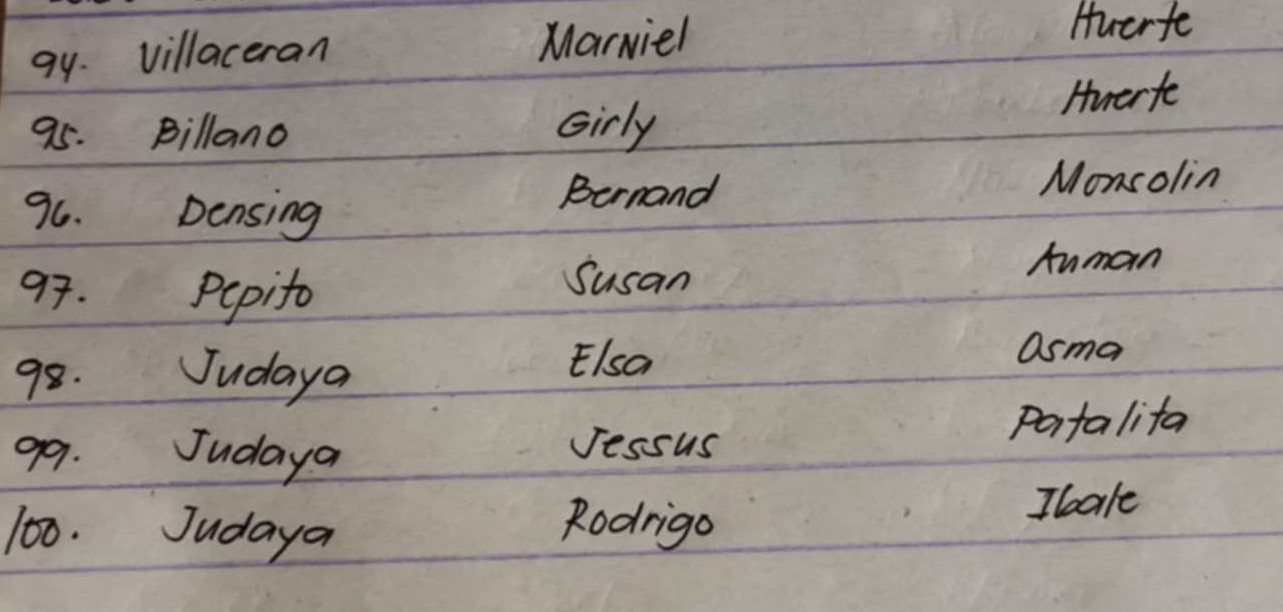 94. Villaceran Marniel Huerte
95. Billano Girly Huerte
96. Densing Bernand Monsolin
97. Pepito Susan Auman
98. Judaya Elsa Osma
99. Judaya Jessus Patalita
100. Judaya Rodrigo Ibale